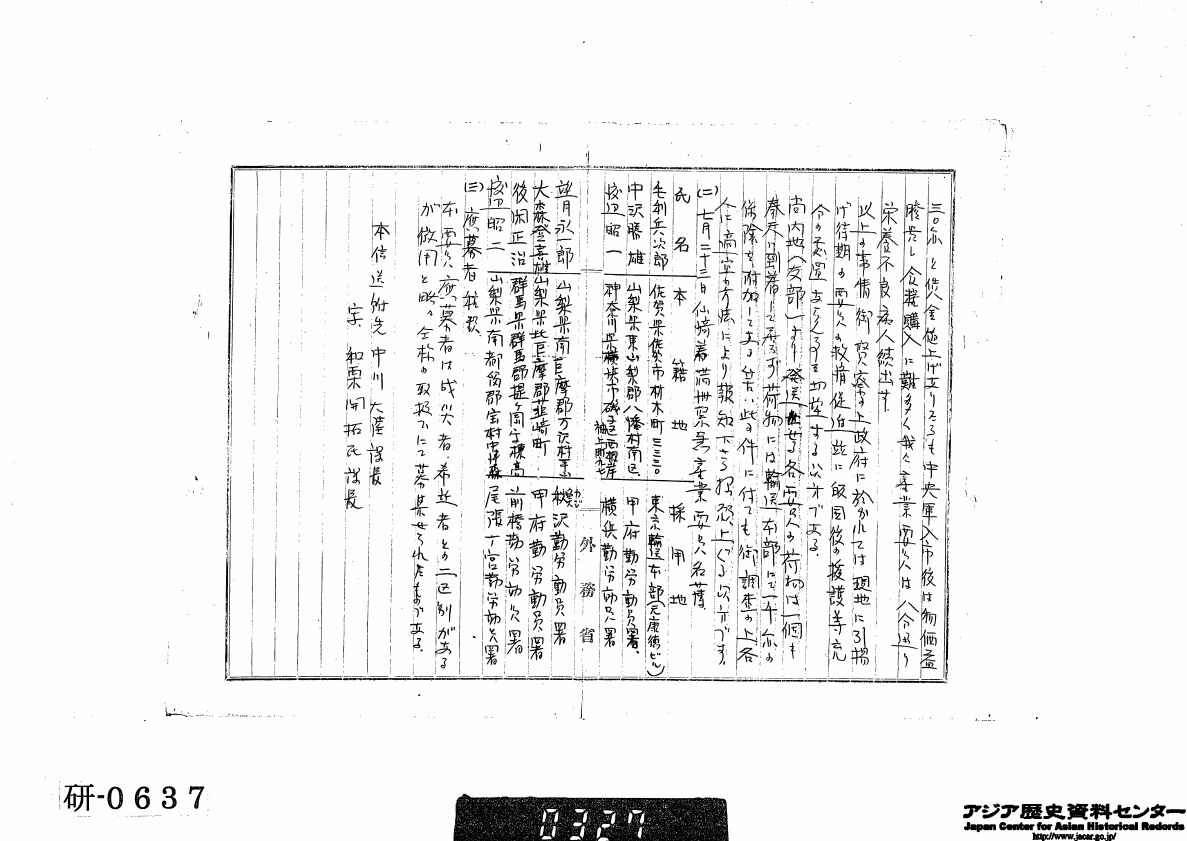 三〇ふと供金値上げありたるも中央軍入市後は物価益
騰貴し食糧購入に難多く我々産業要員は八分通り
栄養不良病人続出す
以上の事情御賢察上政府に於かれては現地に引揚
げ待期の要員の救済促進並に帰国後の援護等充
分の処置あらんことを切望する次第である
尚内地(支部)より発送せる各要員の荷物は一個も
奉天に到着して居らず荷物には輸送本部にて一千ふの
保険を附加してある筈い此の件に付ても御調査の上各
人に適宜の方法により報知下さる様願上ぐる次第です。
(二)七月二十三日仙崎着満州緊急産業要員名簿
氏名 本籍地 採用地
毛利兵次郎 佐賀県佐賀市材木町三三〇 東京輸送本部(元康徳ビル)
中沢勝雄 山梨県東山梨郡八幡村南区 甲府勤労動員署、
渡辺昭一 神奈川県横浜市磯子区西根岸 横浜勤労動員署
外務省
望月永一郎 山梨県南巨摩郡万沢村 鰍沢勤労動員署
大森登喜雄 山梨県北巨摩郡韮崎町 甲府勤労動員署
後閑正治 群馬県群馬郡堤ヶ岡字棟高 前橋勤労動員署
渡辺昭二 山梨県南都留郡宝村中津森 尾張一宮勤労動員署
(三)應募者種別
本要員應募者は戦災者、希望者との二区別がある
が傲用と略々全様の取扱ひにて募集せられたものである。
本信送附先 中川大陸課長
宛 和栗開拓民課長
研-0637
0327
アジア歴史資料センター
Japan Center for Asian Historical Records
http://www.jacar.go.jp/